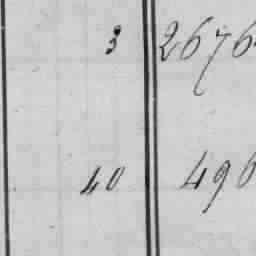 3 2676
40 496